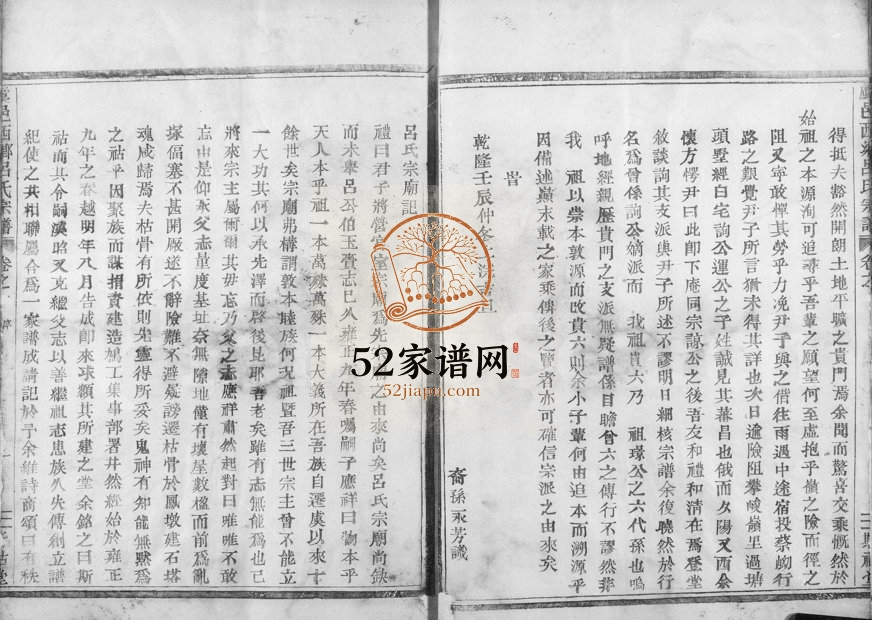 得抵夫豁然開朗土地平曠之貴門焉余聞而驚喜交乘慨然於
始祖之本源洵可追尋乎吾輩之願望何至虛抱乎嶺之險而徑之
阻又寧敢憚其勞乎力浼尹子與之偕往雨遇中途宿投蔡岰行
路之艱覺尹子所言猶未得其詳也次日逾險阻攀峻嶺里過塘
頭墅經白宅詢公運公之子姓誠見其蕃昌也俄而夕陽又西余
懷方愕尹曰此卽下庵同宗諒公之後吾友和禮和清在焉登堂
敘談詢其支派與尹子所述不謬明日細核宗譜余復曉然於行
名爲曾係詢公嫡派而 我祖貴六乃 祖璟公之六代孫也嗚
呼地經親歷貴門之支派無疑譜係目瞻曾六之傳行不謬然非
我 祖以崇本敦源而改貴六則余小子輩何由追本而溯源乎
因備述巔末載之家乘傳後之覽者亦可確信宗派之由來矣
旹
乾隆壬辰仲冬
裔孫永芳識
呂氏宗廟記
禮曰君子將營宮室宗廟爲先 之由來尚矣呂氏宗廟尚缺
而未舉呂公伯玉賫志已久雍正九年春囑嗣子應祥曰物本乎
天人本乎祖一本萬殊萬殊一本大義所在吾族自遷虞以來十
餘世矣宗廟弗構謂敦本睦族何況祖暨吾三世宗主曾不能立
一大功其何以承先澤而啓後昆耶吾老矣雖有志無能爲也已
將來宗主屬爾爾其毋忘乃父之志應祥肅然起對曰唯唯不敢
忘由是仰承父志量度基址奈無隙地僅有壞屋數楹而前爲亂
塚偪塞不甚開厰遂不辭險難不避疑謗遷枯骨於鳳墩建石塔
魂咸歸焉夫枯骨有所依則先靈得所妥矣鬼神有知能無默爲
之祜乎因聚族而謀捐貲建造鳩工集事部署井然經始於雍正
九年之春越明年八月告成卽來球額其所建之堂余銘之曰斯
祜而其令嗣漢昭又克繼父志以善繼祖志患族人失傳創立譜
紀使之共相聯屬合爲一家譜成請記於予余維詩商頌曰有秩
虞邑西鄉呂氏宗譜
卷之
虞邑西鄉呂氏宗譜
卷之一
52家谱网
52jiapu.com